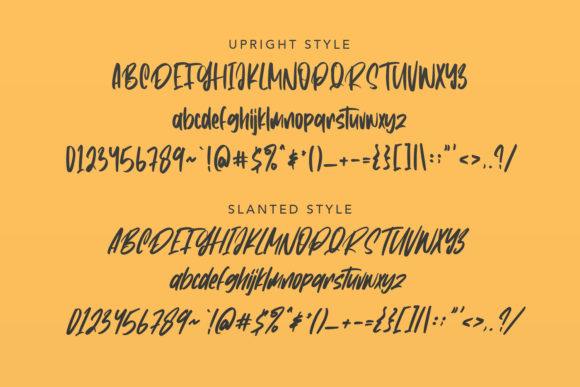 UPRIGHT STYLE
ABCDEFGHIJKLMNOPQRSTUVWXYZ
abcdefghijklmnopqrstuvwxyz
0123456789~`!@#$%^&*()_+-={}[]|\:;"'<>,.?/
SLANTED STYLE
ABCDEFGHIJKLMNOPQRSTUVWXYZ
abcdefghijklmnopqrstuvwxyz
0123456789~`!@#$%^&*()_+-={}[]|\:;"'<>,.?/